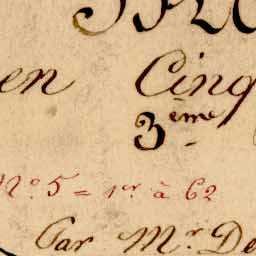 en Cinq
3ème
No. 5 = 1er à 62
Par Mr. De